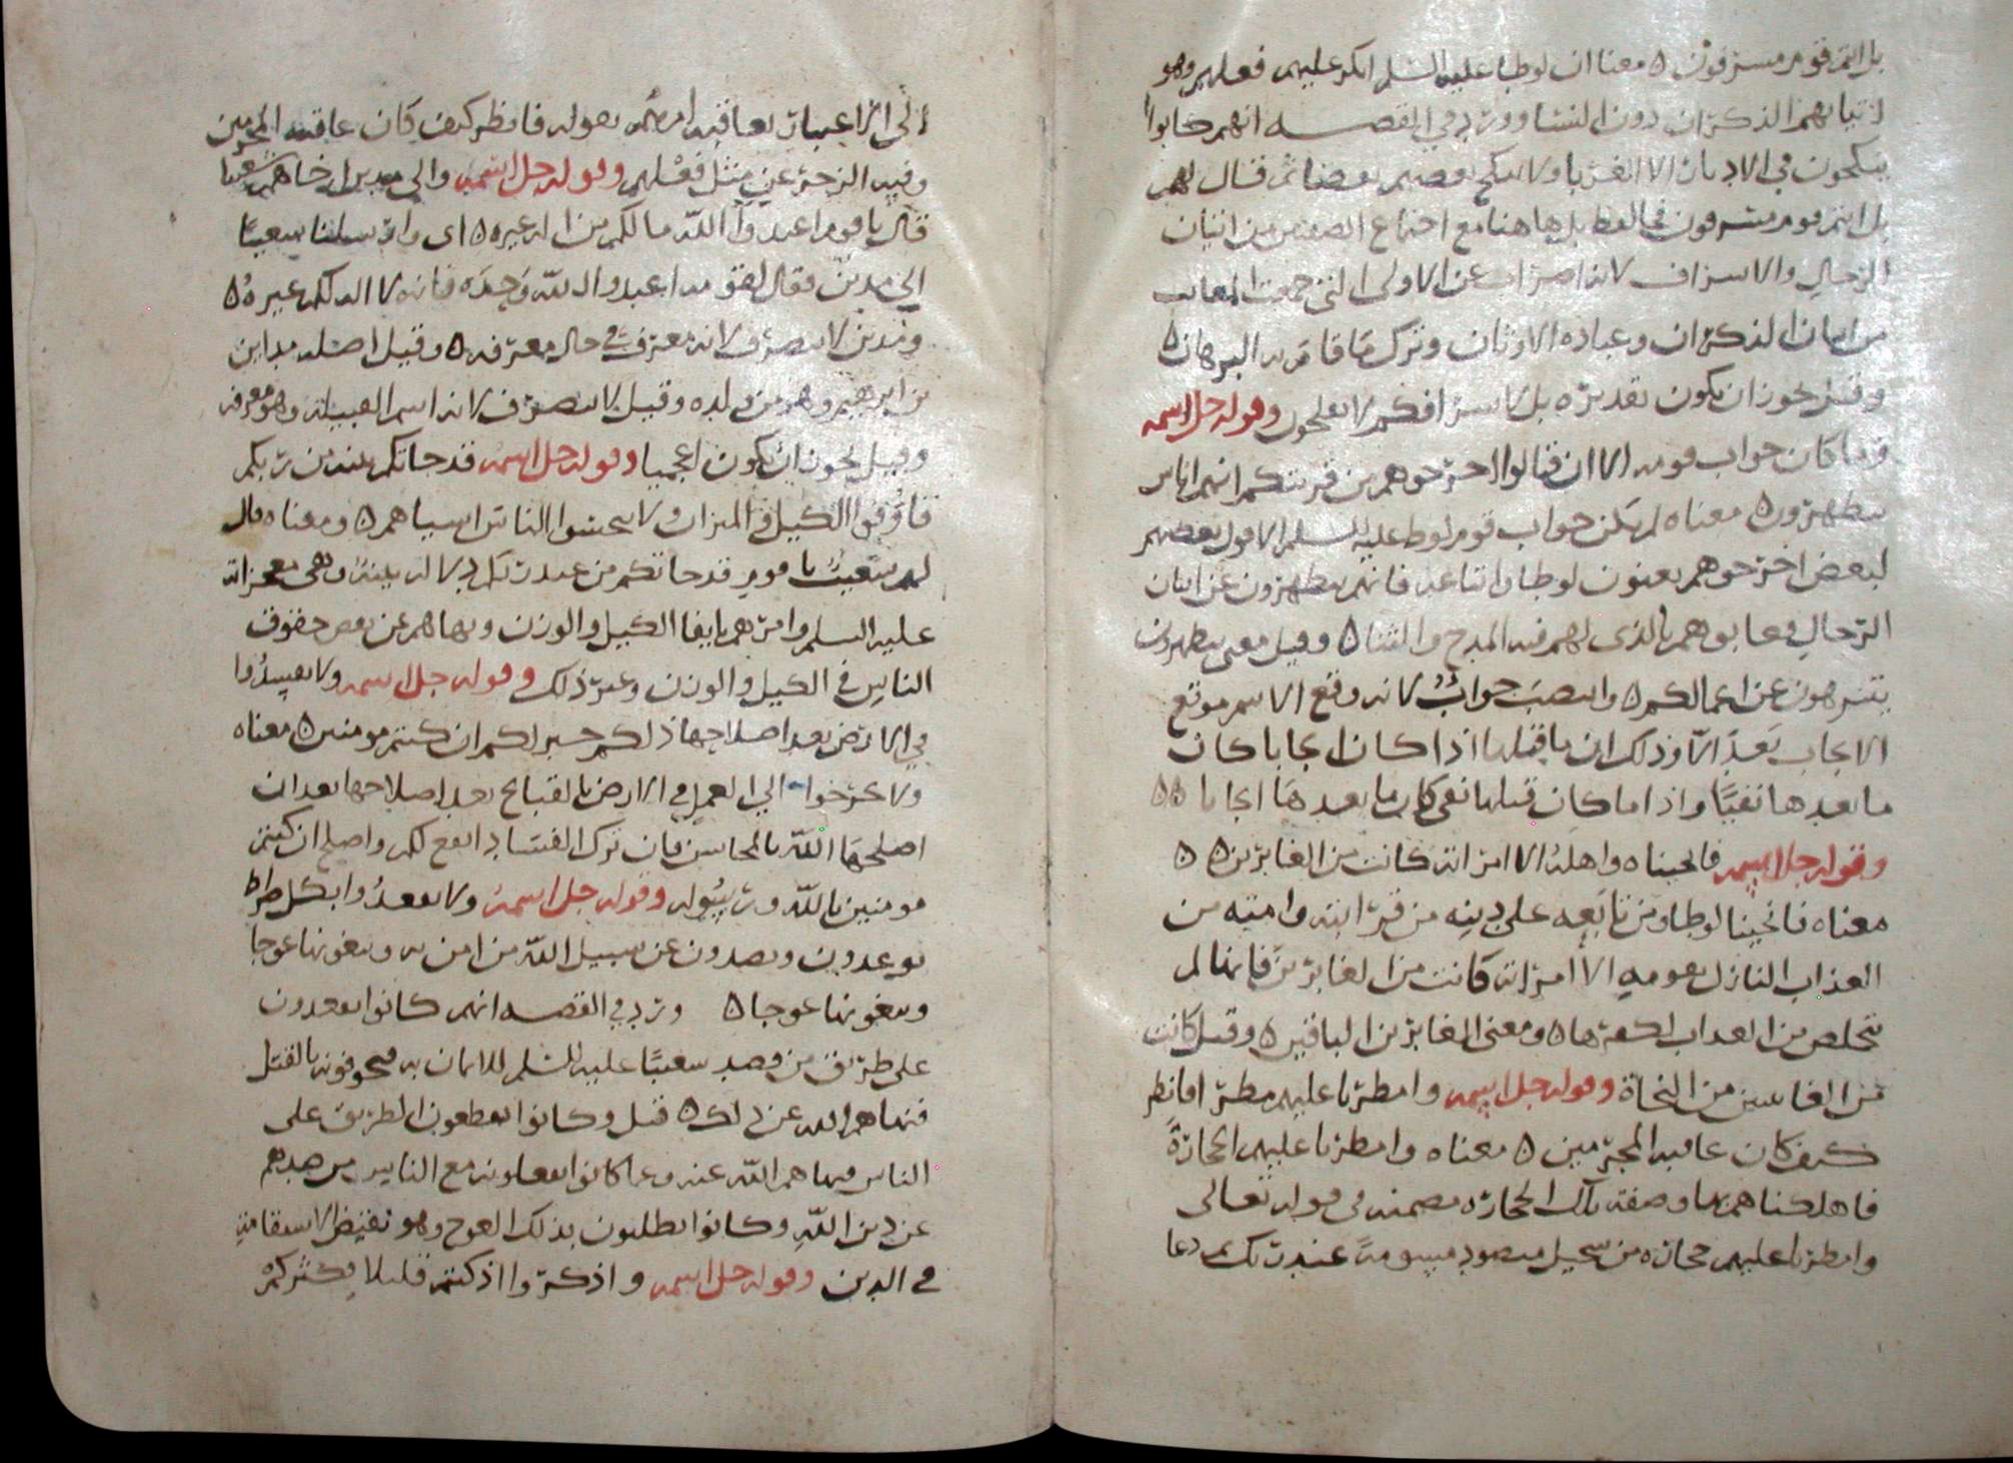 بل انتم قوم مسرفون ٥ معناه ان لوطا عليه السلم انكر عليهم فعلهم وهو
اتيانهم الذكران دون النسا وورد في القصه انهم كانوا
ينكحون في الادبار الا الغربا ولا ينكح بعضهم بعضا ثم قال لهم
بل انتم قوم مسرفون بل هاهنا مع اجتماع الصفتين من اتيان
الرجال والاسراف لانه اضراب عن الاولى التي جمعت المعايب
من اتيان الذكران وعباده الاوثان وترك ما قام به البرهان ٥
وقيل يجوز ان يكون تقديره بل لاسرافكم لا تفلحون وقوله جل اسمه
وما كان جواب قومه الا ان قالوا اخرجوهم من قريتكم انهم اناس
يتطهرون ٥ معناه لم يكن جواب قوم لوط عليه السلم الا قول بعضهم
لبعض اخرجوهم يعنون لوطا واتباعه فانهم يتطهرون عن اتيان
الرجال فعابوهم بالذي لهم فيه المدح والثنا ٥ وقيل معنى يتطهرون
يتنزهون عن اعمالكم ٥ وانتصب جواب لانه وقع الاسم موقع
الايجاب بعد الا وذلك ان ما قبلها اذا كان ايجابا كان
ما بعدها نفيا واذا ما كان قبلها نفي كان ما بعدها ايجابا ٥٥
وقوله جل اسمه فانجيناه واهله الا امراته كانت من الغابرين ٥ ٥
معناه فانجينا لوطا ومن تابعه على دينه من قرابته وامته من
العذاب النازل بقومه الا امراته كانت من الغابرين فانها لم
تتخلص من العذاب لكفرها ٥ ومعنى الغابرين الباقين ٥ وقيل كانت
من الغايبين من النجاة وقوله جل اسمه وامطرنا عليهم مطرا فانظر
كيف كان عاقبه المجرمين ٥ معناه وامطرنا عليهم الحجارة
فاهلكناهم بها وصفه تلك الحجاره مضمنه في قوله تعالى
وامطرنا عليهم حجاره من سجيل منضود مسومة عند ربك ثم دعا
الى الاعتبار بعاقبه امرهم بقوله فانظر كيف كان عاقبه المجرمين
وفيه الزجر عن مثل فعلهم وقوله جل اسمه والى مدين اخاهم شعيبا
قال يا قوم اعبدوا الله ما لكم من اله غيره ٥ اى وارسلنا شعيبا
الى مدين فقال لقومه اعبدوا الله وحده فانه لا اله لكم غيره ٥
ومدين لا ينصرف لانه معرفة في حال معرفه ٥ وقيل اصله مدين
بن ابرهيم وهم من ولده وقيل لا ينصرف لانه اسم القبيله وهو معرفه
وقيل يجوز ان يكون اعجميا وقوله جل اسمه قد جاتكم بينه من ربكم
فاوفوا الكيل والميزان ولا تبخسوا الناس اشياهم ٥ ومعناه قال
لهم شعيب يا قوم قد جاتكم من عند ربكم دلاله بينة وهي معجزاته
عليه السلم وامرهم بايفا الكيل والوزن ونهاهم عن نقص حقوق
الناس في الكيل والوزن وغير ذلك وقوله جل اسمه ولا تفسدوا
في الارض بعد اصلاحها ذلكم خير لكم ان كنتم مومنين ٥ معناه
ولا تخرجوا الى العمل في الارض بالقبايح بعد اصلاحها بعد ان
اصلحها الله بالمحاسن فان ترك الفساد انفع لكم واصلح ان كنتم
مومنين بالله ورسوله وقوله جل اسمه ولا تقعدوا بكل صراط
توعدون وتصدون عن سبيل الله من امن به وتبغونها عوجا
وتبغونها عوجا ٥ ورد في القصه انهم كانوا يقعدون
على طريق من قصد شعيبا عليه السلم للايمان به فيخوفونه بالقتل
فنهاهم الله عن ذلك ٥ قيل وكانوا يقطعون الطريق على
الناس فنهاهم الله عنه وعما كانوا يفعلونه مع الناس من صدهم
عن دين الله وكانوا يطلبون بذلك العوج وهو نقيض الاستقامه
في الدين وقوله جل اسمه واذكروا اذ كنتم قليلا فكثركم